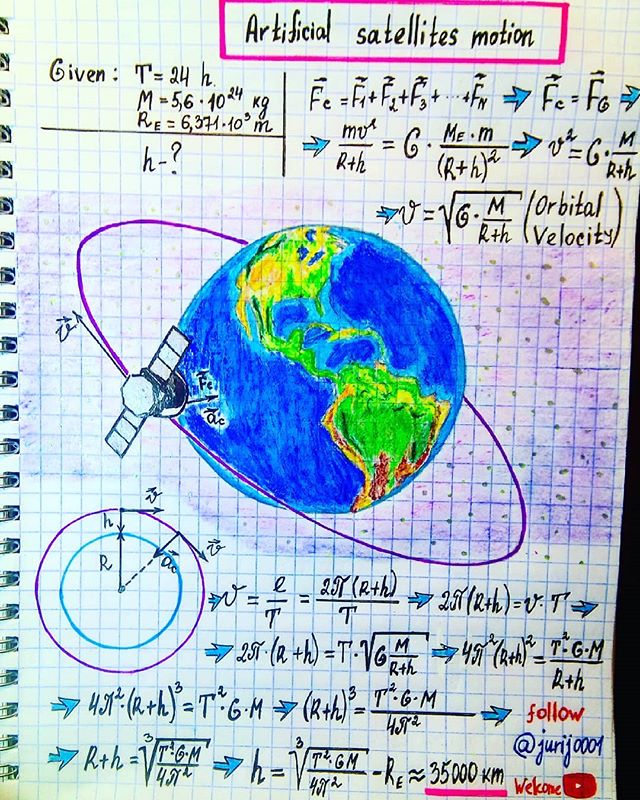 Artificial satellites motion
Given: T = 24 h.
M = 5,6 · 10²⁴ kg
R_E = 6,371 · 10³ m
h - ?
F⃗c = F⃗₁ + F⃗₂ + F⃗₃ + ··· + F⃗_N ⇒ F⃗c = F⃗_G ⇒
⇒ mv²/(R+h) = G · (M_E · m)/(R+h)² ⇒ v² = G · M/(R+h)
⇒ v = √(G · M/(R+h)) (Orbital Velocity)
v⃗
F⃗c
a⃗c
v⃗
h
v⃗
R
a⃗c
⇒ v = l/T = 2π(R+h)/T ⇒ 2π(R+h) = v · T ⇒
⇒ 2π·(R+h) = T · √(G M/(R+h)) ⇒ 4π²(R+h)² = T²·G·M/(R+h)
⇒ 4π²·(R+h)³ = T²·G·M ⇒ (R+h)³ = T²·G·M/4π² ⇒
⇒ R+h = ∛(T²·G·M/4π²) ⇒ h = ∛(T²·G·M/4π²) - R_E ≈ 35000 km
follow
@jurij0001
Welcome